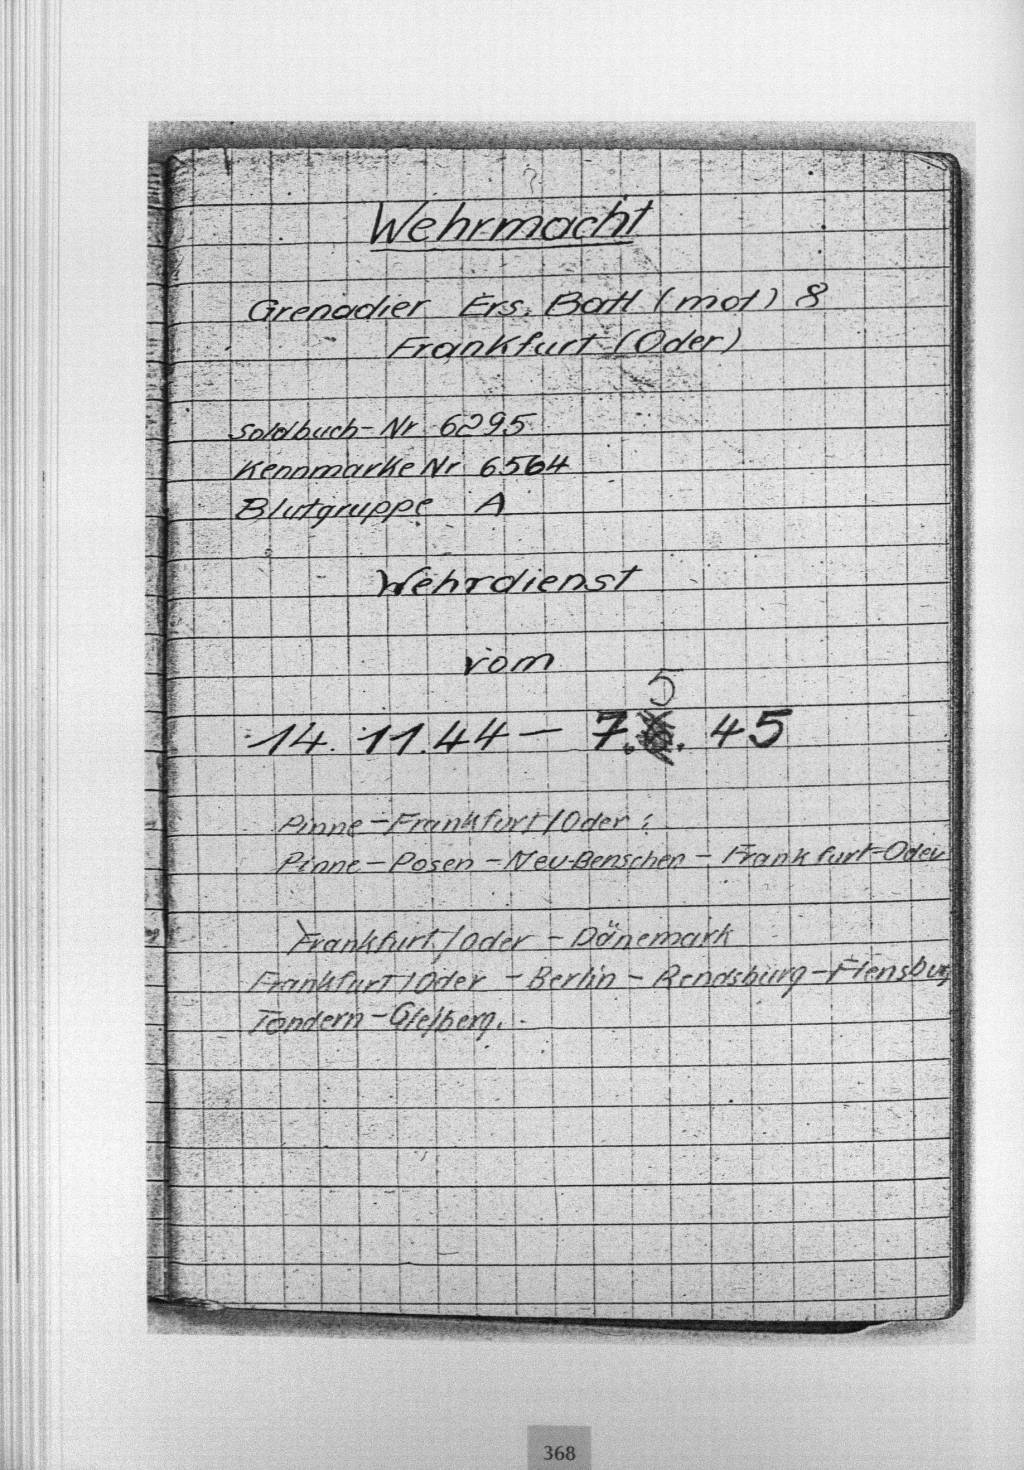 Wehrmacht
Grenadier Ers. Batl (mot) 8
Frankfurt (Oder)
Soldbuch-Nr 6295
Kennmarke Nr 6564
Blutgruppe A
Wehrdienst
vom
5
14. 11. 44 – 7. 6. 45
Pinne – Frankfurt/Oder:
Pinne – Posen – Neu-Benschen – Frankfurt-Oder
Frankfurt/Oder – Dänemark
Frankfurt/Oder – Berlin – Rendsburg – Flensburg
Tondern – Glejberg.
368